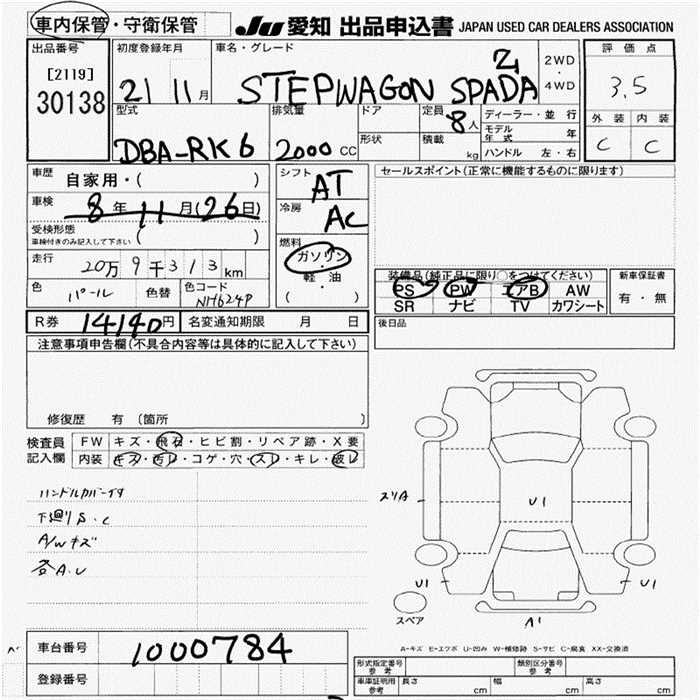 車内保管・守衛保管
JU 愛知 出品申込書 JAPAN USED CAR DEALERS ASSOCIATION
出品番号
[2119]
30138
初度登録年月
21 11月
車名・グレード
Z
STEPWAGON SPADA
2WD
・
4WD
評価点
3.5
外装 内装
C C
型式
DBA-RK6
排気量
2000 CC
ドア
形状
定員
8人
積載
kg
ディーラー・並行
モデル年式 年
ハンドル 左・右
車歴
自家用・( )
車検
8年11月(26日)
受検形態
車検付きのみ記入して下さい ( )
走行
20万9千313km
色
パール
色替
色コード
NH624P
シフト
AT
冷房
AC
燃料
ガソリン・
軽・油
( )
セールスポイント(正常に機能するものに限ります)
装備品(純正品に限り○をつけてください)
PS PW エアB AW
SR ナビ TV カワシート
新車保証書
有・無
後日品
R券 14140円 名変通知期限 月 日
注意事項申告欄(不具合内容等は具体的に記入して下さい)
修復歴 有 (箇所 )
検査員
記入欄
FW キズ・飛石・ヒビ割・リペア跡・X要
内装 キズ・汚レ・コゲ・穴・スレ・キレ・破レ
ハンドルカバー付
下廻りS.C
A/Wキズ
各A.U
スリA
U1
U1
U1
A1
スペア
A-キズ E-エクボ U-凹み W-補修跡 S-サビ C-腐食 XX-交換済
車台番号
1000784
登録番号
形式指定番号
参考
類別区分番号
参考
車庫証明用
参考
長さ cm 幅 cm 高さ cm